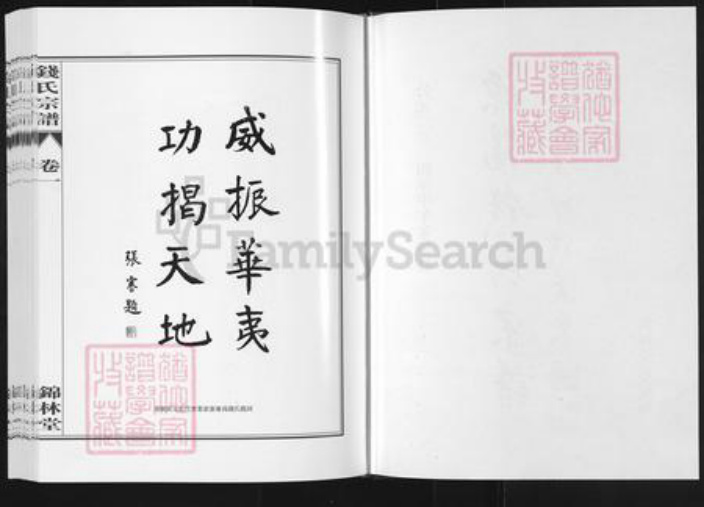 威振華夷
功揭天地
張寒題
錢氏宗譜
卷一
錦林堂
猶他家譜學會收藏
猶他家譜學會收藏
FamilySearch